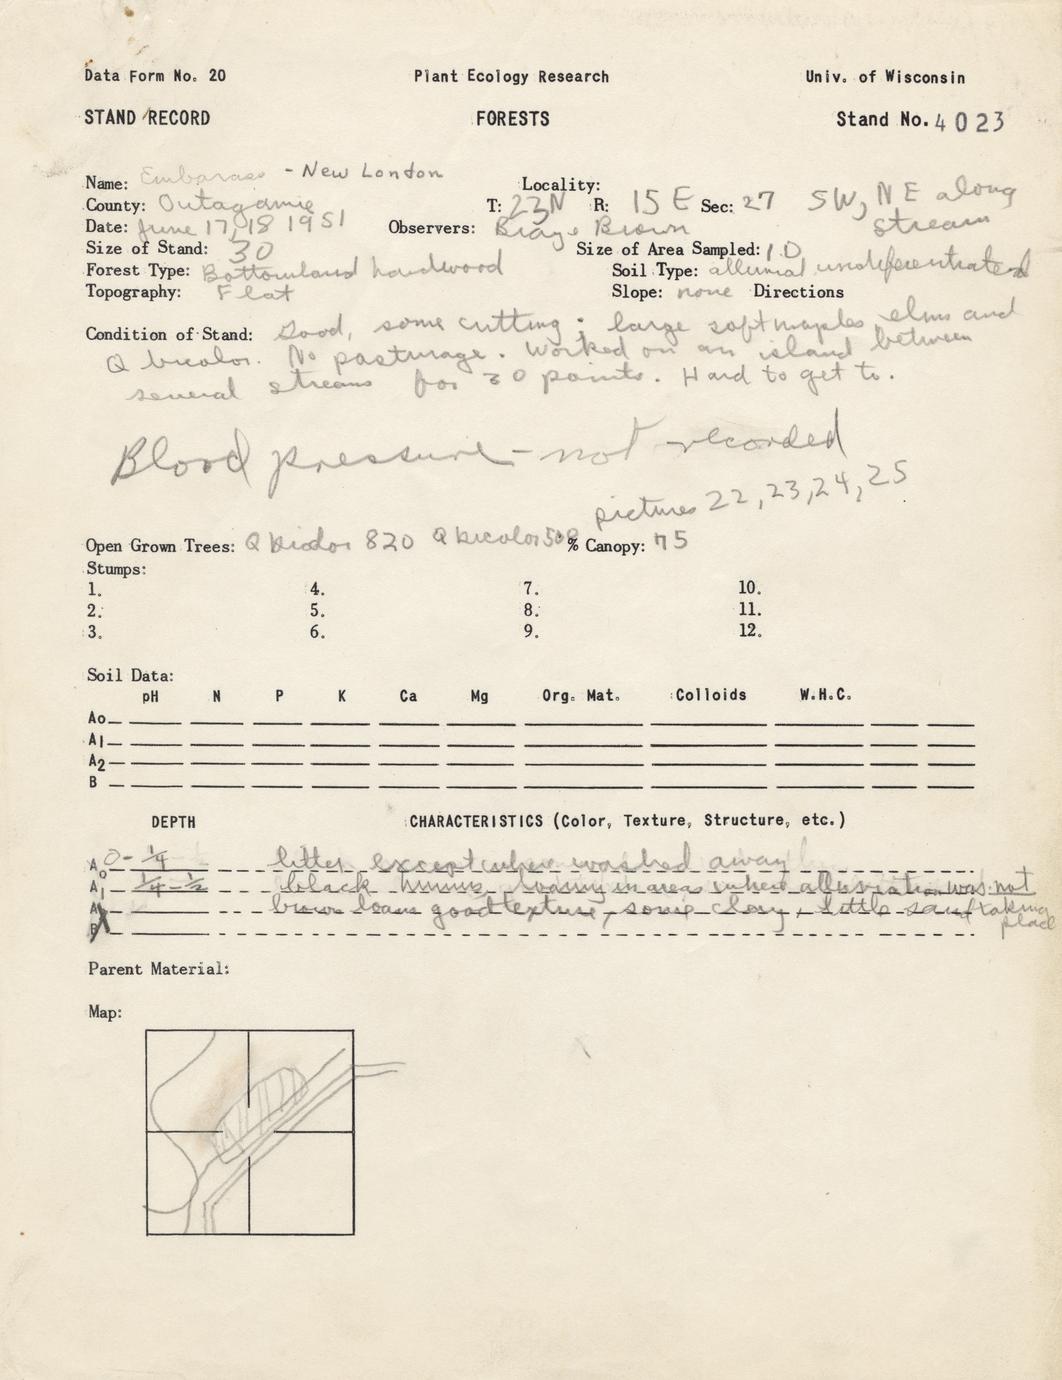 Data Form No. 20 Plant Ecology Research Univ. of Wisconsin
STAND RECORD FORESTS Stand No. 4023
Name: Embarass - New London Locality:
County: Outagamie T: 23N R: 15 E Sec: 27 SW, NE along
stream
Date: June 17, 18 1951 Observers: Bray & Brown
Size of Stand: 30 Size of Area Sampled: 10
Forest Type: Bottomland hardwood Soil Type: alluvial undeferentiated
Topography: Flat Slope: none Directions
Condition of Stand: Good, some cutting; large soft maples, elms and
Q bicolor. No pasturage. Worked on an island between
several streams for 30 points. Hard to get to.
Blood pressure - not recorded
pictures 22, 23, 24, 25
Open Grown Trees: Q bicolor 820 Q bicolor % Canopy: 75
Stumps:
1. 4. 7. 10.
2. 5. 8. 11.
3. 6. 9. 12.
Soil Data:
pH N P K Ca Mg Org. Mat. Colloids W.H.C.
Ao
A1
A2
B
DEPTH CHARACTERISTICS (Color, Texture, Structure, etc.)
A0 0-1/4 litter except where washed away
A1 1/4-1/2 black humus, loamy in areas where alluviation was not
taking
place
A brown loam good texture, some clay, little sand
B
Parent Material:
Map: